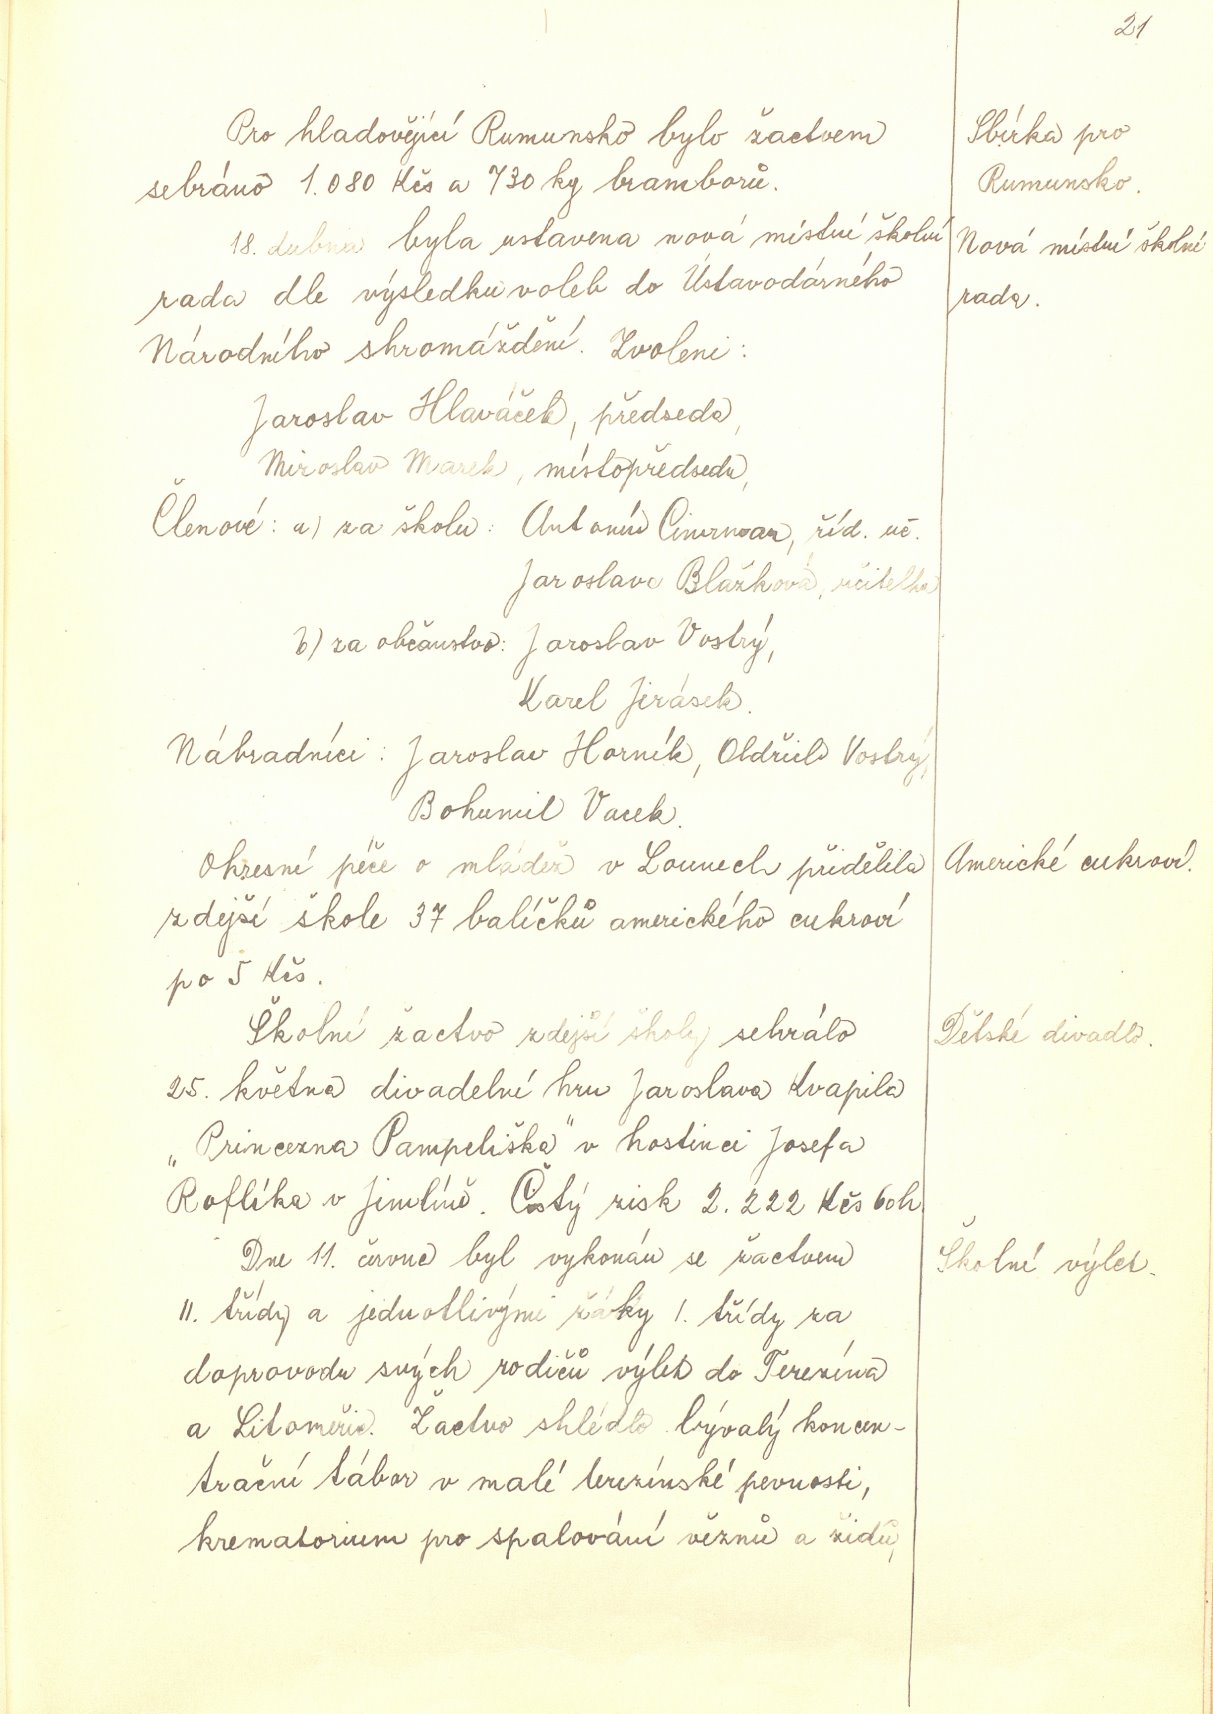 21
Pro hladovějící Rumunsko bylo žactvem
sebráno 1.080 Kčs a 730 kg bramborů.
Sbírka pro
Rumunsko.
18. dubna byla ustavena nová místní školní
rada dle výsledku voleb do Ústavodárného
Národního shromáždění. Zvoleni:
Nová místní školní
rada.
Jaroslav Hlaváček, předseda,
Miroslav Marek, místopředseda,
Členové: a) za školu: Antonín říd. uč.
Jaroslava Blažková, učitelka
b) za občanstvo: Jaroslav Vostrý,
Karel Jirásek.
Náhradníci: Jaroslav Horník, Oldřich Vostrý,
Bohumil Vacek.
Okresní péče o mládež v Lounech přidělila
zdejší škole 37 balíčků amerického cukroví
po 5 Kčs.
Americké cukroví.
Školní žactvo zdejší školy sehrálo
25. května divadelní hru Jaroslava Kvapila
„Princezna Pampeliška" v hostinci Josefa
Roflíka v Jimlíně. Čistý zisk 2.222 Kčs 60h
Dětské divadlo.
Dne 11. června byl vykonán se žactvem
II. třídy a jednotlivými žáky I. třídy za
doprovodu svých rodičů výlet do Terezína
a Litoměřic. Žactvo shlédlo bývalý koncen-
trační tábor v malé terezínské pevnosti,
krematorium pro spalování vězňů a židů,
Školní výlet.